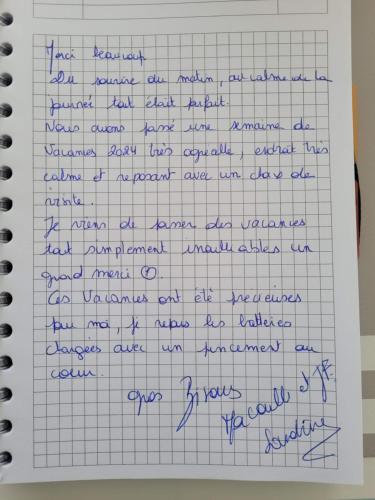 Merci beaucoup
Du sourire du matin, au calme de la
journée tout était parfait.
Nous avons passé une semaine de
Vacances 2024 très agréable, endroit très
calme et reposant avec un choix de
visite.
Je viens de passer des vacances
tout simplement inoubliables un
grand merci
Ces Vacances ont été précieuses
pour moi, je repars les batteries
chargées avec un pincement au
coeur.
gros Bisous